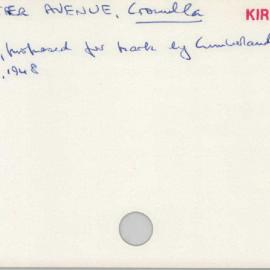 AVENUE, Cronulla KIR
, proposed for park by Cumberland
, 1948